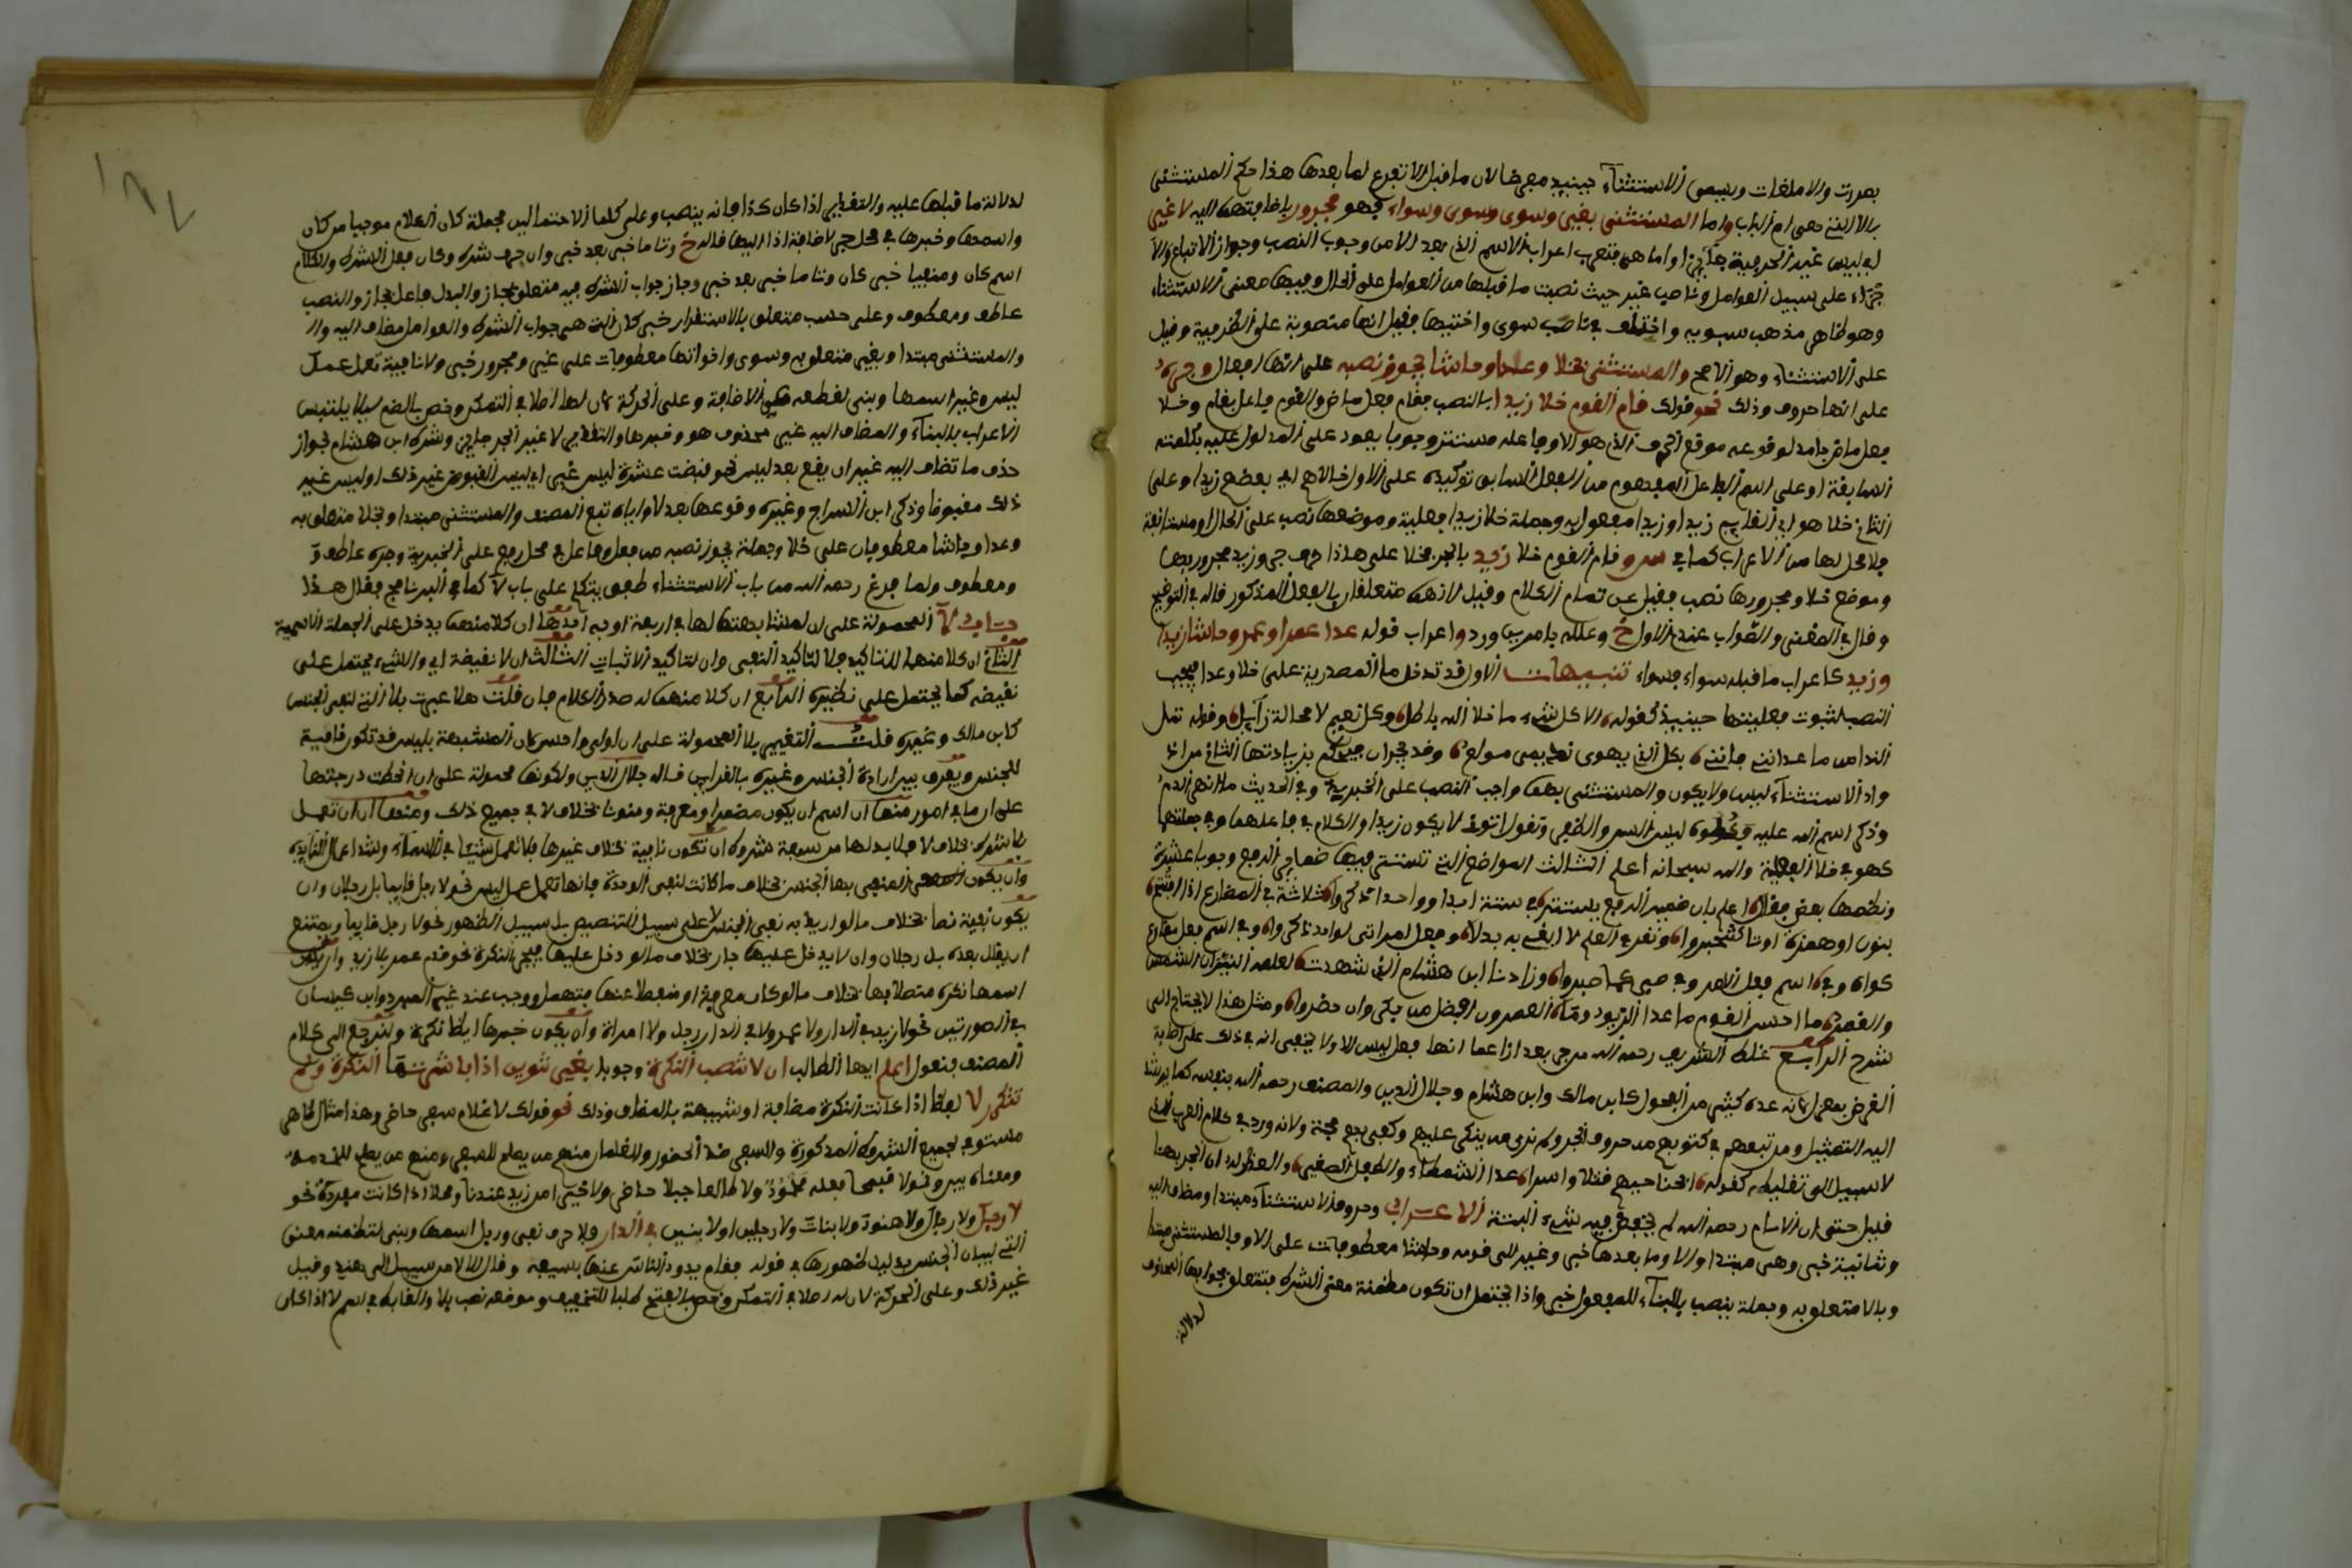 بمررت والاملغات ويسمى الاستثناء حينيذ مفرغا لان ما قبل الا تفرغ لما بعدها هذا حكم المستثنى
بالا التي هي ام الباب واما المستثنى بغير وسوى وسوى وسواء فهو مجرور باضافتها اليه لا غير
اي ليس غير الجر فيه جايزا واما هي فتعرب اعراب الاسم الذي بعد الا من وجوب النصب وجواز الاتباع والا
جراء على سبيل العوامل وناصب غير حيث نصبت ما قبلها من العوامل على الحال وفيها معنى الاستثناء
وهو ظاهر مذهب سبويه واختلف في ناصب سوى واختيها فقيل انها منصوبة على الظرفية وقيل
على الاستثناء وهو الاصح والمستثنى بخلا وعدا وحاشا يجوز نصبه على انها افعال وجره
على انها حروف وذلك نحو قولك قام القوم خلا زيدا بالنصب فقام فعل ماض والقوم فاعل بقام وخلا
فعل ماض جامد لوقوعه موقع الحرف الذي هو الا وفاعله مستتر وجوبا يعود على المدلول عليه بكلمته
السابقة او على اسم الفاعل المفهوم من الفعل السابق توكيده على الاول خلا هم اي بعضهم زيدا وعلى
الثاني خلا هو اي القايم زيدا وزيدا مفعول به وجملة خلا زيدا فعلية وموضعها نصب على الحال او مستانفة
فلا محل لها من الاعراب كما في سر وقام القوم خلا زيد بالجر فخلا على هذا حرف جر وزيد مجرور بها
وموضع خلا ومجرورها نصب فقيل عن تمام الكلام وقيل لانهما متعلقان بالفعل المذكور قاله في التوضيح
وقال في المغني والصواب عندي الاول خ وعلله بامرين ورد واعراب قوله عدا عمرا وعمرو وحاشا زيدا
وزيد كاعراب ما قبله سواء بسواء تنبيهات الاول قد تدخل ما المصدرية على خلا وعدا فيجب
النصب لثبوت فعليتها حينيذ كقوله الا كل شيء ما خلا الله باطل وكل نعيم لا محالة زايل وقوله تمل
الندامى ما عداني فانني بكل الذي يهوى نديمي مولع وقد يجران بزيادتها الثاني من
واد الاستثناء ليس ولا يكون والمستثنى بهما واجب النصب على الخبرية وفي الحديث ما انهر الدم
وذكر اسم الله عليه فكلوه ليس السن والظفر وتقول اتوني لا يكون زيدا والكلام في فاعلهما وفي جملتهما
كهو في خلا الفعلية والله سبحانه اعلم الثالث المواضع التي تستتر فيها ضماير الرفع وجوبا عشرة
ونظمها بعض فقال اعلم بان ضمير الرفع يستتر في ستة ابدا وواحدا ذكروا ثلاثة في المضارع اذا افتتح
بنون او همزة
شرح الرابع رحمه الله بعد اذا عما انها فعل ليس الا ولا يخفى انه في ذلك على
الغرض بمعزل لانه عده كثير من الفحول كابن مالك وابن هشام وجلال الدين والمصنف رحمه الله بنفسه كما يرشد
اليه التمثيل ومن تبعهم في كتبهم من حروف الجر ولم نرى من ينكر عليهم وكفى بهم حجة ولانه ورد في كلام العرب
لا سبيل الى تقليله كقوله ابحنا حيهم قتلا واسرا عدا الشمطاء والطفل الصغير
قيل حتى ان الامام رحمه الله لم يحفظ فيه شيء البتة الاعراب وحروف الاستثناء مبتدا ومضاف اليه
وثمانية خبر وهي مبتدا والا وما بعدها خبر وغير الى قوله وحاشا معطوفات على الا وفالمستثنى مبتدا
وبالا متعلق به وجملة ينصب بالبناء للمفعول خبر واذا يحتمل ان تكون مضمنة معنى الشرط فتتعلق بجوابها المحذوف
لدلالة
لدلالة ما قبلها عليه والتقدير اذا كان كذا فانه ينصب وعلى كلا الاحتمالين فجملة كان الكلام موجبا من كان
واسمها وخبرها في محل جر لاضافة اذا اليها قاله خ وتاما خبر بعد خبر وان حرف شرط وكان فعل الشرط والكلام
اسم كان ومنفيا خبر كان وتاما خبر بعد خبر وجاز جواب الشرط فيه متعلق بجاز والبدل فاعل بجاز والنصب
عاطف ومعطوف وعلى حسب متعلق بالاستقرار خبر كان التي هي جواب الشرط والعوامل مضاف اليه وال
والمستثنى مبتدا وبغير متعلق به وسوى واخواتها معطوفات على غير ومجرور خبر ولا نافية تعمل عمل
ليس وغير اسمها وبني لقطعه عن الاضافة وعلى الحركة لان لها اصلا في التمكن وخص بالضم ليلا يلتبس
الاعراب بالبناء والمضاف اليه غير محذوف هو وخبرها والتقدير لا غير الجر جايز وشرط ابن هشام لجواز
حذف ما تضاف اليه غير ان يقع بعد ليس نحو قبضت عشرة ليس غير اي ليس المقبوض غير ذلك او ليس غير
ذلك مقبوضا وذكر ابن السراج وغيره وقوعها بعد لا واياه تبع المصنف والمستثنى مبتدا وبخلا متعلق به
وعدا وحاشا معطوفان على خلا وجملة يجوز نصبه من فعل وفاعل في محل رفع على الخبرية وجره عاطف
ومعطوف ولما فرغ رحمه الله من باب الاستثناء طفق يتكلم على باب لا كما في البرنامج فقال هذا
باب لا المحمولة على ان لمشابهتها لها في اربعة اوجه احدها ان كلا منهما يدخل على الجملة الاسمية
الثاني ان كلا منهما للتاكيد فلا لتاكيد النفي وان لتاكيد الاثبات الثالث ان لا نقيضة ان والشيء يحتمل على
نقيضه كما يحتمل على نظيره الرابع ان كلا منهما له صدر الكلام فان قلت هلا عبرت بلا التي لنفي الجنس
كابن مالك وغيره قلت التعبير بلا المحمولة على ان اولى واحسن لان المشبهة بليس قد تكون نافية
للجنس ويفرق بين ارادة الجنس وغيره بالقراين قاله جلال الدين ولكونها محمولة على ان انحطت درجتها
على ان ما في امور منها ان اسم ان يكون مضمرا ومعرفة ومنونا بخلاف لا في جميع ذلك ومنها ان ان تعمل
بلا شرط بخلاف لا فلا بد لها من سبعة شروط ان تكون نافية بخلاف غيرها فلا تعمل شيئا في الاسماء وشذ اعمال الزايدة
وان يكون المنفي بها الجنس بخلاف ما كانت لنفي الوحدة فانها تعمل عمل ليس نحو لا رجل قايما بل رجلان وان
يكون نفيه نصا بخلاف ما لو اريد به نفي الجنس لا على سبيل التنصيص بل سبيل الظهور نحو لا رجل قايما ويمتنع
ان يقال بعده بل رجلان وان لا يدخل عليها جار بخلاف ما لو دخل عليها فيجر النكرة نحو قدم عمر بلا زيد وان يكون
اسمها نكرة متصلا بها بخلاف ما لو كان معرفة او منفصلا عنها فتهمل ووجب عند غير المبرد وابن كيسان
في الصورتين نحو لا زيد في الدار ولا عمر ولا في الدار رجل ولا امراة وان يكون خبرها ايضا نكرة ولنرجع الى كلام
المصنف فنقول اعلم ايها الطالب ان لا تنصب النكرة وجوبا بغير تنوين اذا باشرتها النكرة ولم
تتكرر لا لفظا اذا كانت النكرة مضافة او شبيهة بالمضاف وذلك نحو قولك لا غلام سفر حاضر وهذا مثال ظاهر
مستوف لجميع الشروط المذكورة والسفر ضد الحضور والغلمان منهم من يصلح للسفر ومنهم من يصلح للخدمة
ومعناه بين وقولا قبيحا فعله محمود ولا طالعا جبلا حاضر ولا خيرا من زيد عندنا ومحلا اذا كانت مفردة نحو
لا رجل ولا رجال ولا هنود ولا بنات ولا رجلين ولا بنين في الدار فلا حرف نفي ورجل اسمها وبني لتضمنه معنى
التي لبيان الجنس بدليل ظهورها في قوله فقام يذود الناس عنها بسيفه وقال الا لا من سبيل الى هند وقيل
غير ذلك وعلى الحركة لان له اصلا في التمكن وخص بالفتح طلبا للتخفيف وموضعه نصب بلا والضابط في اسم لا اذا كان